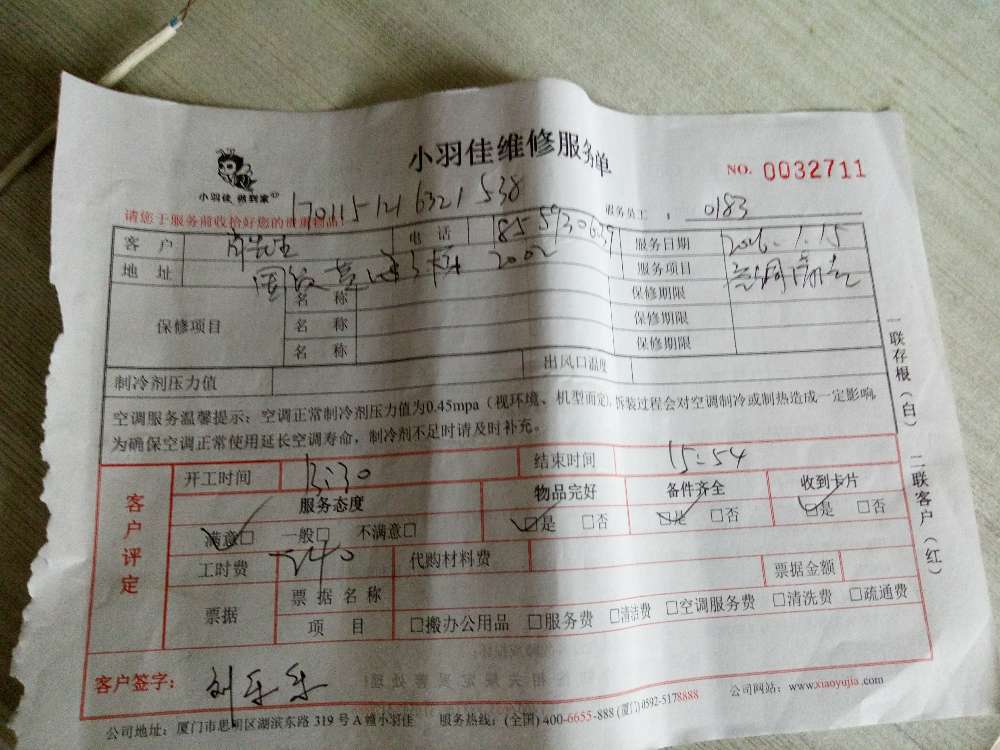 小羽佳维修服务单
NO. 0032711
小羽佳 做到家
1701151216321538
请您于服务前收拾好您的贵重物品! 服务员工: 0183
客户 先生 电话 服务日期 1.15
地址 2002 服务项目 空调
保修项目 名称 保修期限
名称 保修期限
名称 保修期限
制冷剂压力值 出风口温度
空调服务温馨提示:空调正常制冷剂压力值为0.45mpa(视环境、机型而定),拆装过程会对空调制冷或制热造成一定影响
为确保空调正常使用延长空调寿命,制冷剂不足时请及时补充。
客户评定
开工时间 13:30 结束时间 15:54
服务态度 物品完好 备件齐全 收到卡片
满意□ 一般□ 不满意□ □是 □否 □是 □否 □是 □否
工时费 240 代购材料费
票据 票据名称 票据金额
项目 □搬办公用品 □服务费 □清洁费 □空调服务费 □清洗费 □疏通费
客户签字: 刘乐乐
公司地址:厦门市思明区湖滨东路 319 号 A 幢小羽佳 服务热线:(全国) 400-6655-888 (厦门) 0592-5178888 公司网站:www.xiaoyujia.com
一联存根(白) 二联客户(红)